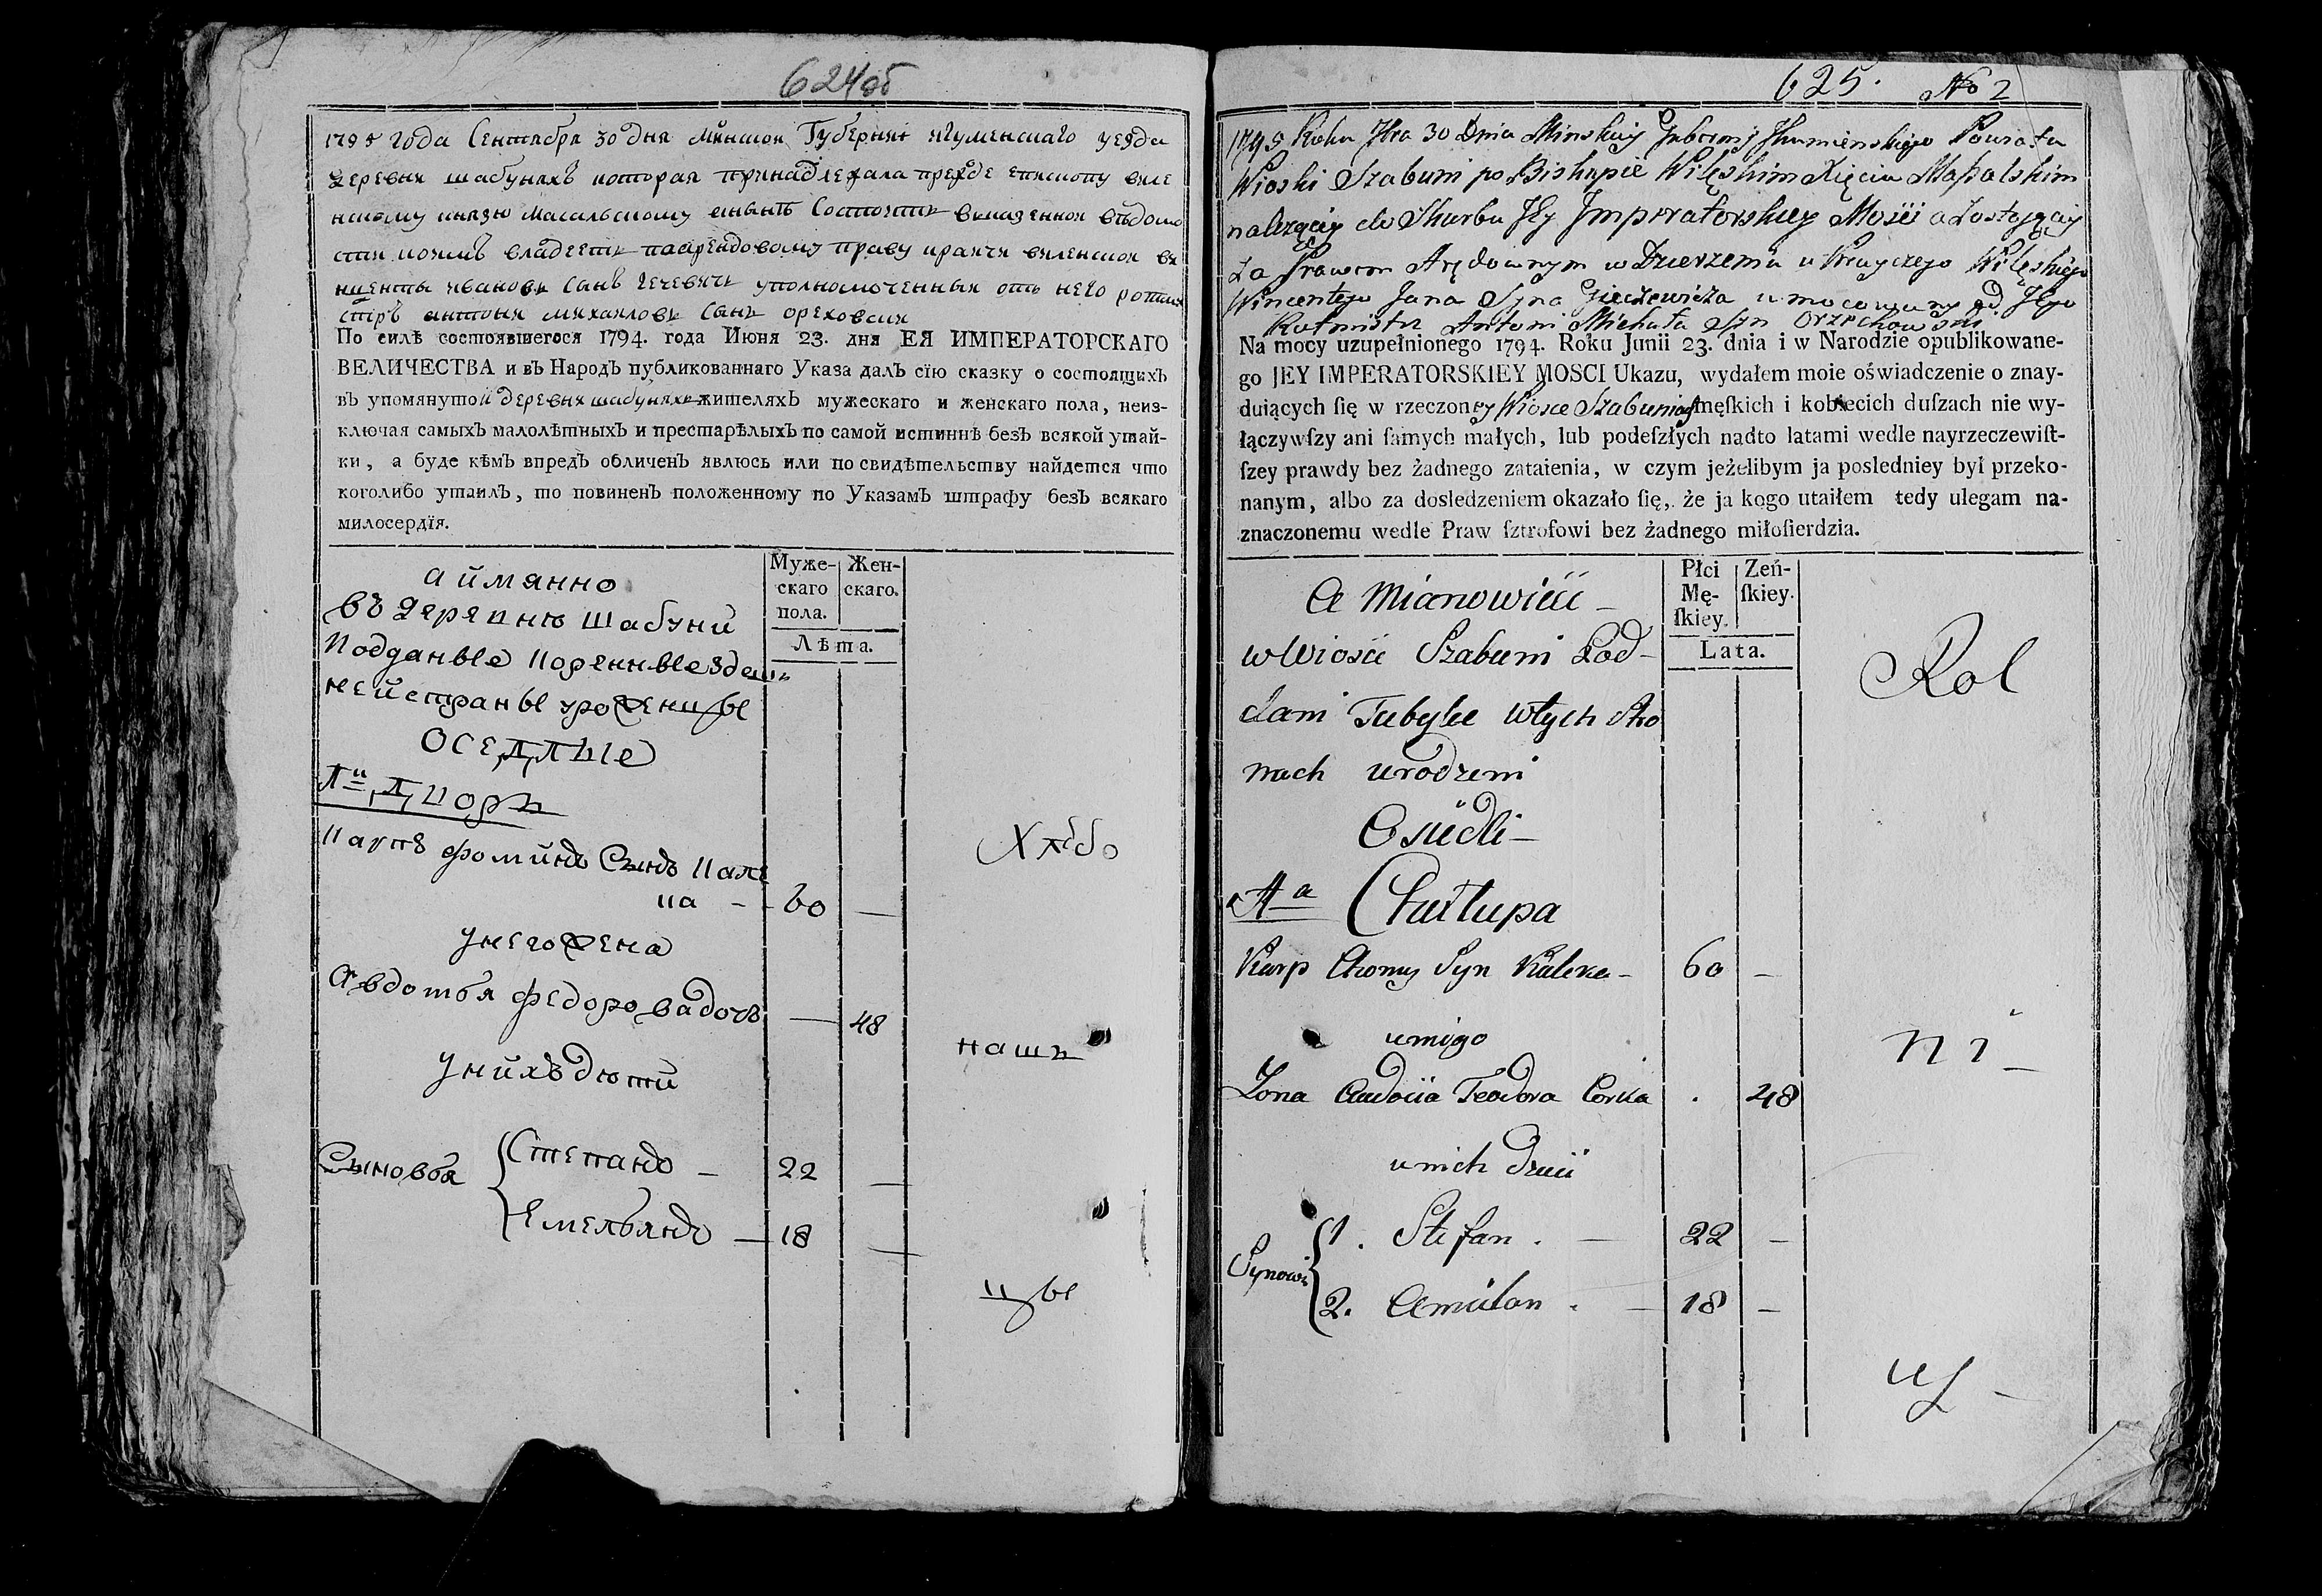 624об
1795 года Сентабря 30 дня минской Губернии игуменскаго уезда
деревни шабунахъ которая принадлежала прежде епископу виле
нскому князю масальскому аныне Состоитъ вказенной вѣдомо
сти коимъ владеетъ поарендовому праву крайчи виленской ви
нценты ивановъ Сынъ Гечевичъ уполномоченный отъ него ротми
стръ антони михайловъ Сынъ ореховски
По силѣ состоявшегося 1794. года Июня 23. дня ЕЯ ИМПЕРАТОРСКАГО
ВЕЛИЧЕСТВА и въ Народъ публикованнаго Указа далъ сїю сказку о состоящихъ
въ упомянутой деревни шабуняхъ жителяхъ мужескаго и женскаго пола, неиз-
ключая самыхъ малолѣтныхъ и престарѣлыхъ по самой истиннѣ безъ всякой утай-
ки, а буде кѣмъ впредъ обличенъ явлюсь или по свидѣтельству найдется что
коголибо утаилъ, то повиненъ положенному по Указамъ штрафу безъ всякаго
милосердїя.
аймянно
въ деревню Шабуни
Подданые коренные зде
неи страны уроженцы
оседлые
двор
Карпъ фоминъ Сынъ Кале
ка - 60 —
унего жена
Авдотья федорова дочь — 48
унихъ дюти
Сыновья { Степанъ — 22 —
Емельянъ — 18 —
Муже-
скаго
пола.
Жен-
скаго.
Лѣта.
Хлѣбо
наши
цы
625. № 2
1795 Roku 7bra 30 Dnia Minskiey Gubernij Ihumienskiego Powiatu
Wioski Szabuni po Biskupie Wilęskim Xięciu Masalskim
należącey do Skarbu Jey Imperatorskiey Mości a zostającey
za Prawem Arędownym w Dzierzeniu u Krayczego Wilęskiego
Wincentego Jana Syna Gieczewicza umocowany od Jego
Rotmistrz Antoni Michała Syn Orzechowski
Na mocy uzupełnionego 1794. Roku Junii 23. dnia i w Narodzie opublikowane-
go JEY IMPERATORSKIEY MOSCI Ukazu, wydałem moie oświadczenie o znay-
duiących ſię w rzeczoney Wiosce Szabuniach męſkich i kobiecich duſzach nie wy-
łączywſzy ani ſamych małych, lub podeſzłych nadto latami wedle nayrzeczewiſt-
ſzey prawdy bez żadnego zataienia, w czym jeżelibym ja posledniey był przeko-
nanym, albo za dosledzeniem okazało ſię, że ja kogo utaiłem tedy ulegam na-
znaczonemu wedle Praw ſztrofowi bez żadnego miłoſierdzia.
A Mianowicie —
w Wiosce Szabuni Pod-
dani Tubylce wtych Stro
nach urodzeni
Osiedli —
1a Chałupa
Karp Chomy Syn Kaleka — 60 —
uniego
Zona Audocia Teodora Corka . 48
unich Dzieci
Synowi { 1. Stefan . — 22 —
2. Amilan . — 18 —
Płci
Mę-
ſkiey.
Zeń-
ſkiey.
Lata.
Rol
ni —
cy —